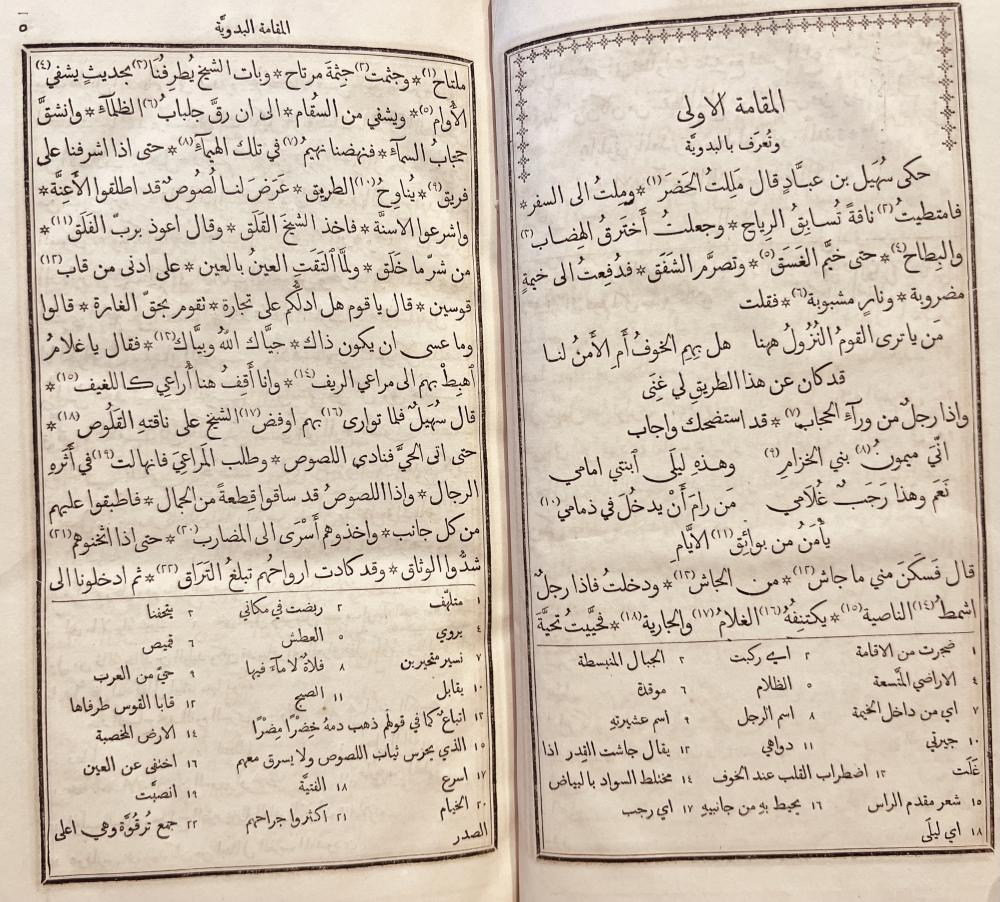 المقامة الاولى
وتُعرَف بالبدويَّة
حكى سُهَيل بن عبَّادٍ قال مَلِلتُ الحَضَرَ (١) * ومِلتُ الى السفر *
فامتطيتُ (٢) ناقةً تُسابِقُ الرِياح * وجعلتُ أَختَرِقُ الهِضاب (٣)
والبِطاح (٤) * حتى خيَّم الغَسَق (٥) * وتصرَّم الشَفَق * فدُفِعتُ الى خيمةٍ
مضروبة * ونارٍ مشبوبة (٦) * فقلت
مَن يا ترى القومُ النُزُولُ ههنا هل بهِمِ الخوفُ أَمِ الأَمنُ لنا
قد كان عن هذا الطريقِ لي غِنَى
واذا رجلٌ من ورآءِ الحجاب (٧) * قد استضحك واجاب
انّي ميمونُ (٨) بني الخزامِ (٩) وهذهِ ليلَى ابنتي امامي
نَعَم وهذا رَجَبٌ غُلامي مَن رامَ أَنْ يدخُلَ في ذمامي (١٠)
يأمَنُ من بوائِقِ (١١) الأيَّامِ
قال فَسَكَنَ مني ما جاش (١٢) * من الجاش (١٣) * ودخلتُ فاذا رجلٌ
اشمطُ (١٤) الناصية (١٥) * يكتنِفُهُ (١٦) الغلامُ (١٧) والجارية (١٨) * فحَيَّيتُ تحيَّةَ
١ ضجرت من الاقامة ٢ اي ركبت ٣ الجبال المنبسطة
٤ الاراضي المتَّسعة ٥ الظلام ٦ موقدة
٧ اي من داخل الخيمة ٨ اسم الرجل ٩ اسم عشيرتهِ
١٠ جيرتي ١١ دواهي ١٢ يقال جاشت القِدر اذا
غَلَت ١٣ اضطراب القلب عند الخوف ١٤ مختلط السواد بالبياض
١٥ شعر مقدم الراس ١٦ يحيط بهِ من جانبيهِ ١٧ اي رجب
١٨ اي ليلَى
المقامة البدويَّة
٥
ملتاح (١) * وجثمت (٢) جِثمةَ مرتاح * وبات الشيخ يُطرِفُنا (٣) بحديثٍ يشفي (٤)
الأُوام (٥) * ويشفي من السَقام * الى ان رقَّ جلبابُ (٦) الظلمآء * وانشقَّ
حجابُ السمآء * فنهضنا نهيمُ (٧) في تلك الهَيمآء (٨) * حتى اذا اشرفنا على
فريق (٩) * يُناوِحُ (١٠) الطريق * عَرَضَ لنا لُصُوصٌ قد اطلقوا الأَعِنَّة *
واشرعوا الاسنَّة * فاخذ الشيخَ القَلَق * وقال اعوذ بربّ الفَلَق (١١) *
من شرّ ما خَلَق * ولمَّا ٱلتَقَتِ العينُ بالعين * على ادنى من قاب (١٢)
قوسين * قال يا قوم هل ادلُّكُم على تجارة * تقوم بحقّ الغارة * قالوا
وما عسى ان يكون ذاك * حيَّاك اللهُ وبيَّاك (١٣) * فقال يا غلامُ
ٱهبِطْ بهِم الى مراعي الريف (١٤) * وانا أَقِفُ هنا أُراعي كاللغيف (١٥) *
قال سُهَيلٌ فلما توارى (١٦) بهِم اوفض (١٧) الشيخ على ناقتهِ القَلُوص (١٨) *
حتى اتى الحيَّ فنادى اللصوص * وطلب المَراعيَ فانهالت (١٩) في أَثَرِهِ
الرجال * واذا اللصوصُ قد ساقوا قِطعةً من الجمال * فاطبقوا عليهِم
من كل جانب * واخذوهم أَسْرَى الى المضارب (٢٠) * حتى اذا اثخنوهم (٢١)
شدُّوا الوثاق * وقد كادت ارواحهُم تبلغُ التَرَاق (٢٢) * ثم ادخلونا الى
١ متلهّف ٢ ربضت في مكاني ٣ يتحفنا
٤ يروي ٥ العطش ٦ قميص
٧ نسير متحيرين ٨ فلاةٌ لا مآءَ فيها ٩ حيّ من العرب
١٠ يقابل ١١ الصبح ١٢ قابا القوس طرفاها
١٣ اتباعٌ كما في قولهم ذهب دمهُ خِضْرًا مِضْرًا ١٤ الارض المخصبة
١٥ الذي يحرس ثياب اللصوص ولا يسرق معهم ١٦ اختفى عن العين
١٧ اسرع ١٨ الفتيَّة ١٩ انصبَّت
٢٠ الخيام ٢١ اكثروا جراحهم ٢٢ جمع تَرقُوَّة وهي اعلى
الصدر